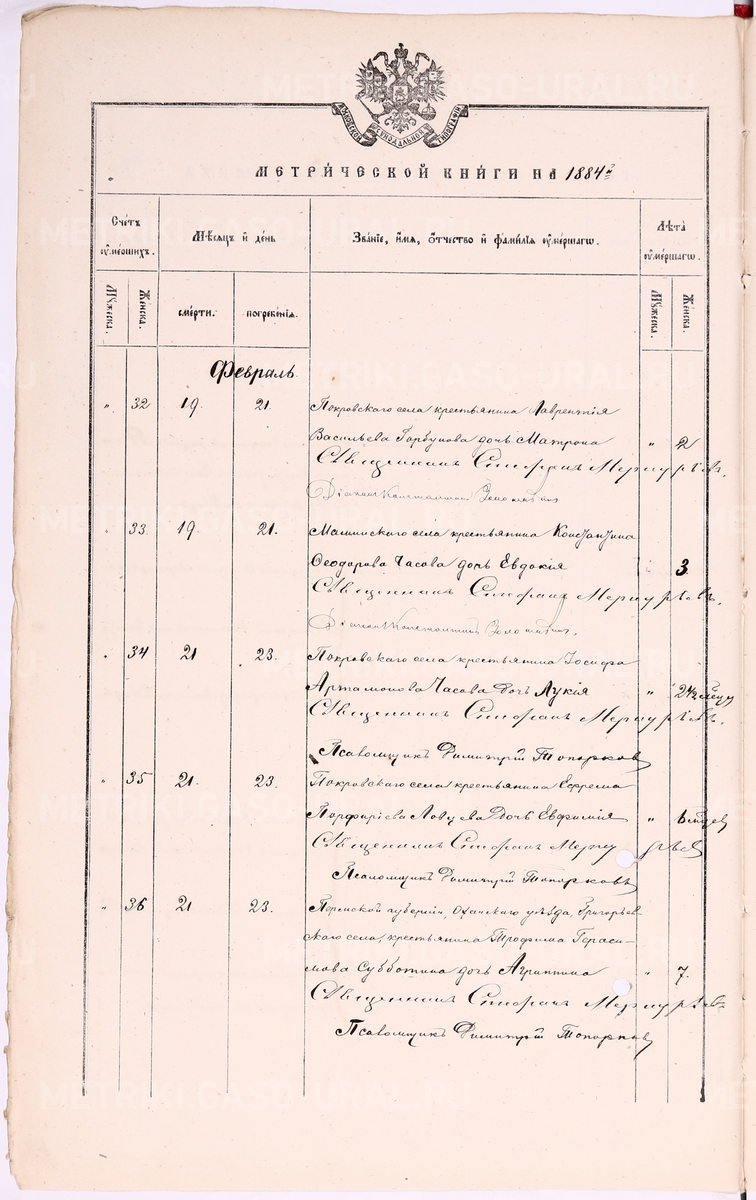 МЕТРИЧЕСКОЙ КНИГИ НА 1884й
Счетъ умершихъ.
Мѣсяцъ и день
Званіе, имя, отчество и фамилія умершаго.
Лѣта умершаго.
Мужеска.
Женска.
смерти.
погребенія.
Мужеска.
Женска.
Февраль
" 32 19. 21. Покровскаго села крестьянина Лаврентія
Васильева Горбунова дочь Матрона " 2
Священникъ Стефанъ Меркурьевъ.
Діаконъ Константинъ
33. 19. 21. Маминскаго села крестьянина Константина
Ѳеодорова Часова дочь Евдокія 3.
Священникъ Стефанъ Меркурьевъ.
Діаконъ Константинъ
34 21 23. Покровскаго села крестьянина Іосифа
Артамонова Часова дочь Лукія " 2½
Священникъ Стефанъ Меркурьевъ.
Псаломщикъ Димитрій Топорковъ
" 35 21. 23. Покровскаго села крестьянина Ефрема
Порфиріева дочь Евфимія "
Священникъ Стефанъ Меркурьевъ
Псаломщикъ Димитрій Топорковъ
" 36 21 23. Пермской губерніи, Оханскаго уѣзда, Григорьев-
скаго села, крестьянина Трофима Гераси-
мова Субботина дочь Агриппина " 7.
Священникъ Стефанъ Меркурьевъ
Псаломщикъ Димитрій Топорковъ
METRIKI.GASO-URAL.RU